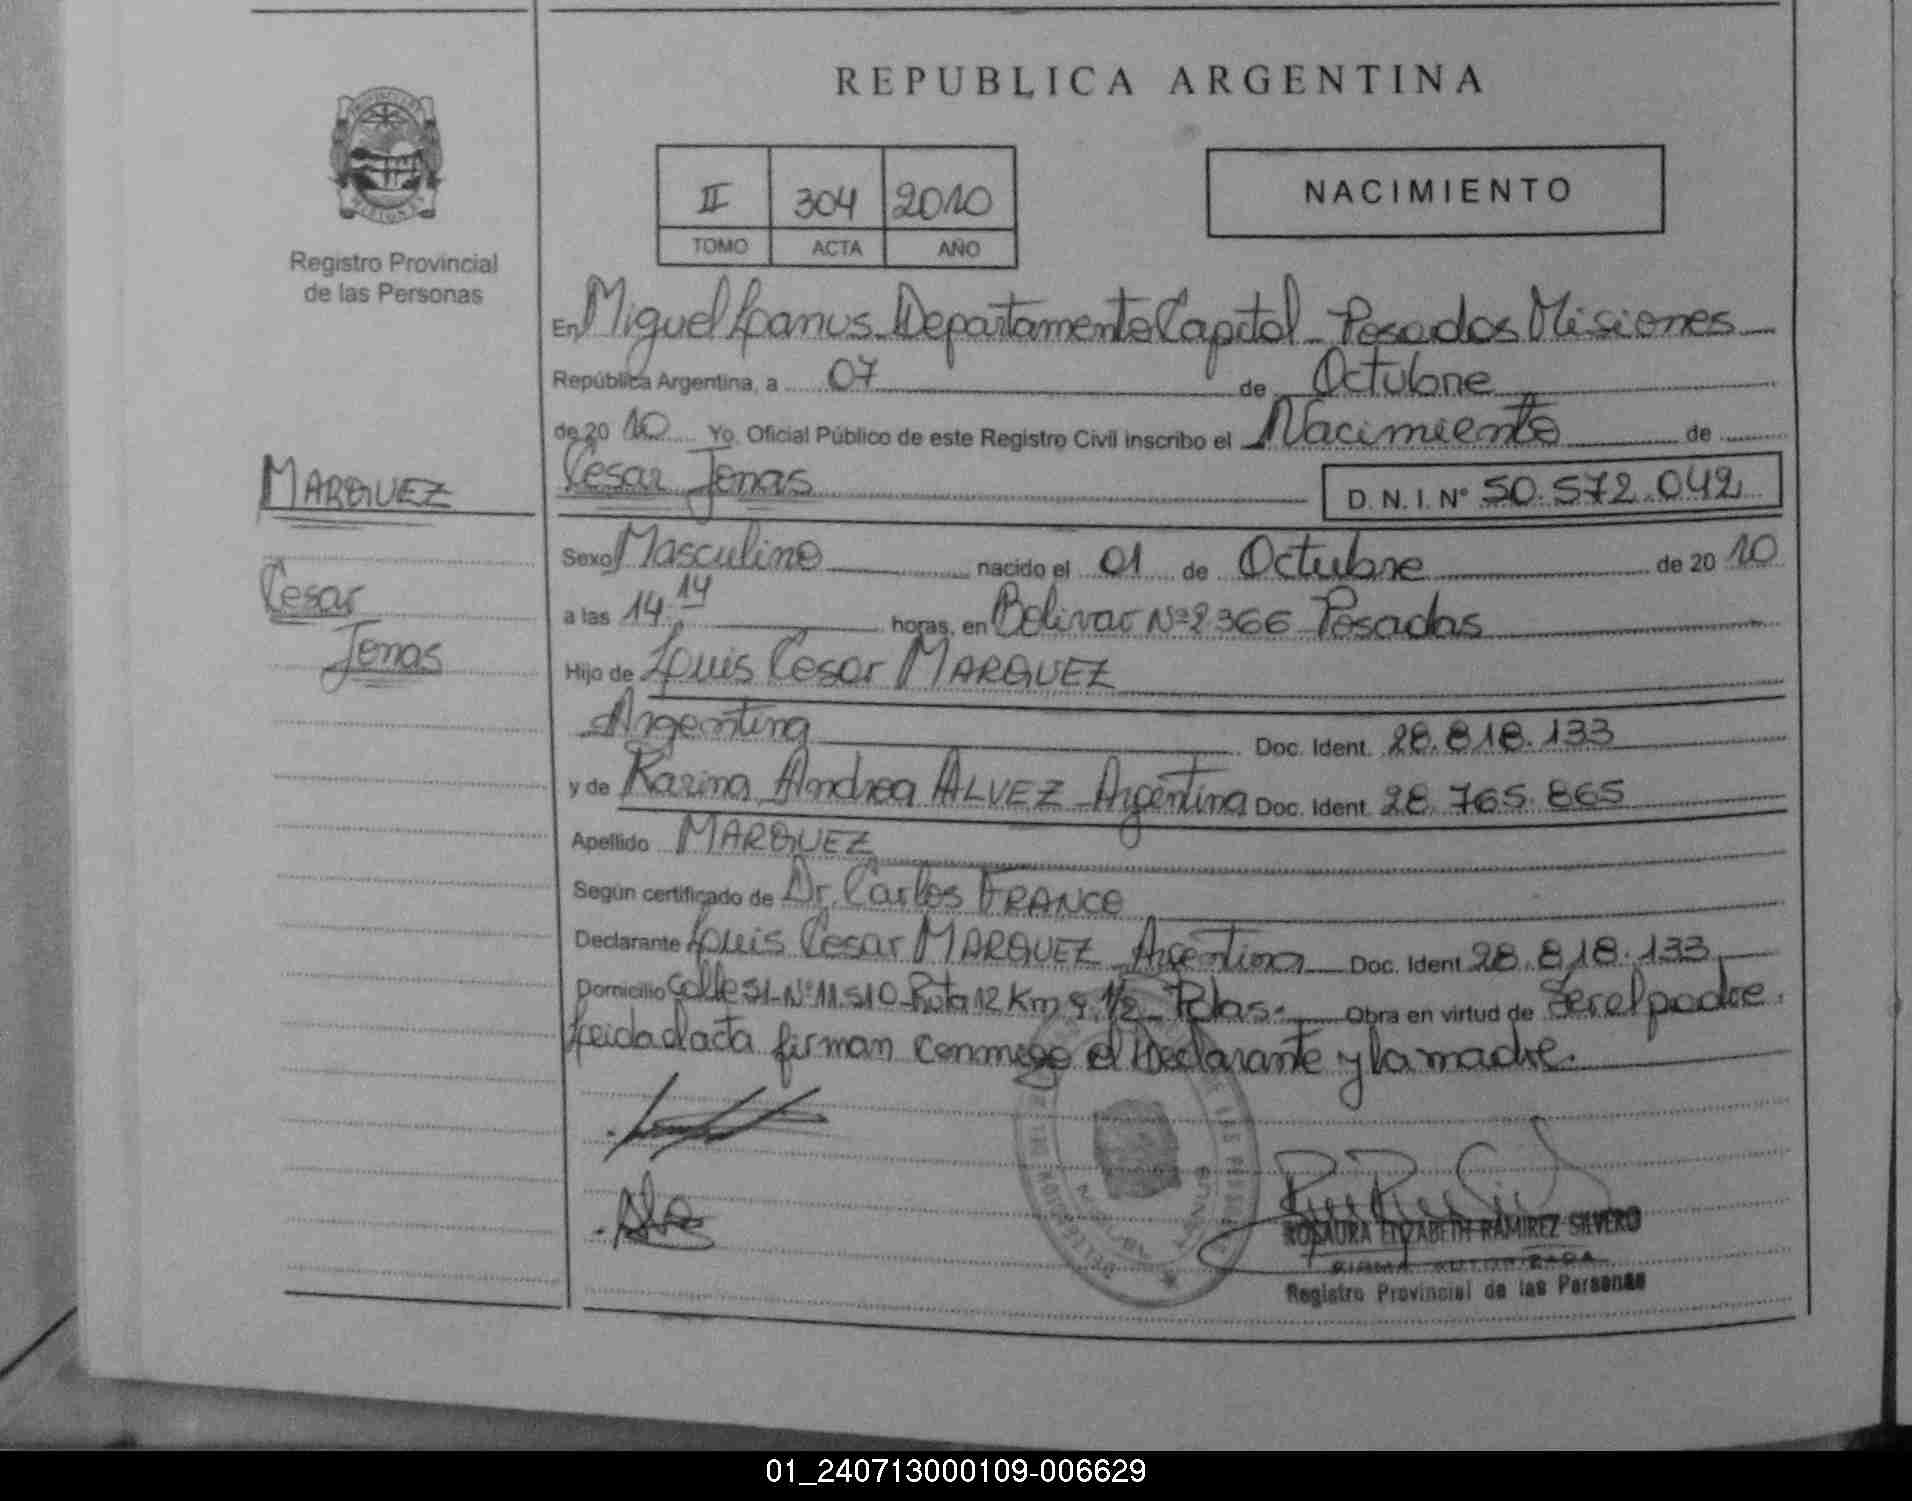 REPUBLICA ARGENTINA
II 304 2010
TOMO ACTA AÑO
NACIMIENTO
Registro Provincial
de las Personas
En Miguel Lanus Departamento Capital Posadas Misiones
República Argentina, a 07 de Octubre
de 2010 Yo, Oficial Público de este Registro Civil inscribo el Nacimiento de
MARQUEZ
Cesar Jonas
D. N. I. N° 50.572.042
Sexo Masculino nacido el 01 de Octubre de 2010
Cesar
a las 14:14 horas, en Bolivar Nº 2366 Posadas
Jonas
Hijo de Luis Cesar MARQUEZ
Argentina Doc. Ident. 28.818.133
y de Karina Andrea ALVEZ Argentina Doc. Ident. 28.765.865
Apellido MARQUEZ
Según certificado de Dr. Carlos FRANCO
Declarante Luis Cesar MARQUEZ Argentina Doc. Ident. 28.818.133
Domicilio Calle 51 Nº 11.510 Ruta 12 Km 9 1/2 Pdas. Obra en virtud de Ser el padre.
Leida el acta firman conmigo el Declarante y la madre.
ROSAURA ELIZABETH RAMIREZ SILVERO
FIRMA AUTORIZADA
Registro Provincial de las Personas
01_240713000109-006629